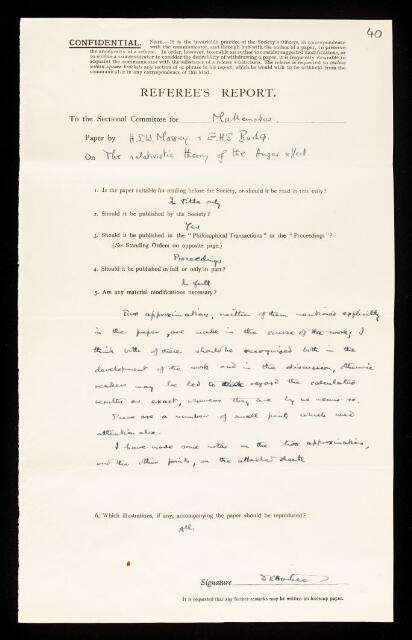 40
CONFIDENTIAL. NOTE.—It is the invariable practice of the Society's Officers, in correspondence
with the communicator, and through him with the author of a paper, to preserve
the anonymity of a referee. In order, however, to enable an author to consider suggested modifications, or
to enable a communicator to consider the desirability of withdrawing a paper, it is frequently desirable to
acquaint the communicator with the substance of a referee's criticisms. The referee is requested to enclose
within square brackets any section of or phrase in his report, which he would wish to be withheld from the
communicator in any correspondence of this kind.
REFEREE'S REPORT.
To the Sectional Committee for Mathematics.
Paper by H.S.W. Massey & E.H.S. Burhop
On The relativistic theory of the Auger effect.
1. Is the paper suitable for reading before the Society, or should it be read in title only?
In title only
2. Should it be published by the Society?
Yes
3. Should it be published in the "Philosophical Transactions" or the "Proceedings"?
(See Standing Orders on opposite page.)
Proceedings
4. Should it be published in full or only in part?
In full
5. Are any material modifications necessary?
Two approximations, neither of them mentioned explicitly
in the paper, are made in the course of the work; I
think both of these should be recognised both in the
development of the work and in the discussion, otherwise
readers may be led to regard the calculated
results as exact, whereas they are by no means so.
There are a number of small points which need
attention also.
I have made some notes on the two approximations,
and the other points, on the attached sheets
6. Which illustrations, if any, accompanying the paper should be reproduced?
All.
Signature D R Hartree
It is requested that any further remarks may be written on foolscap paper.